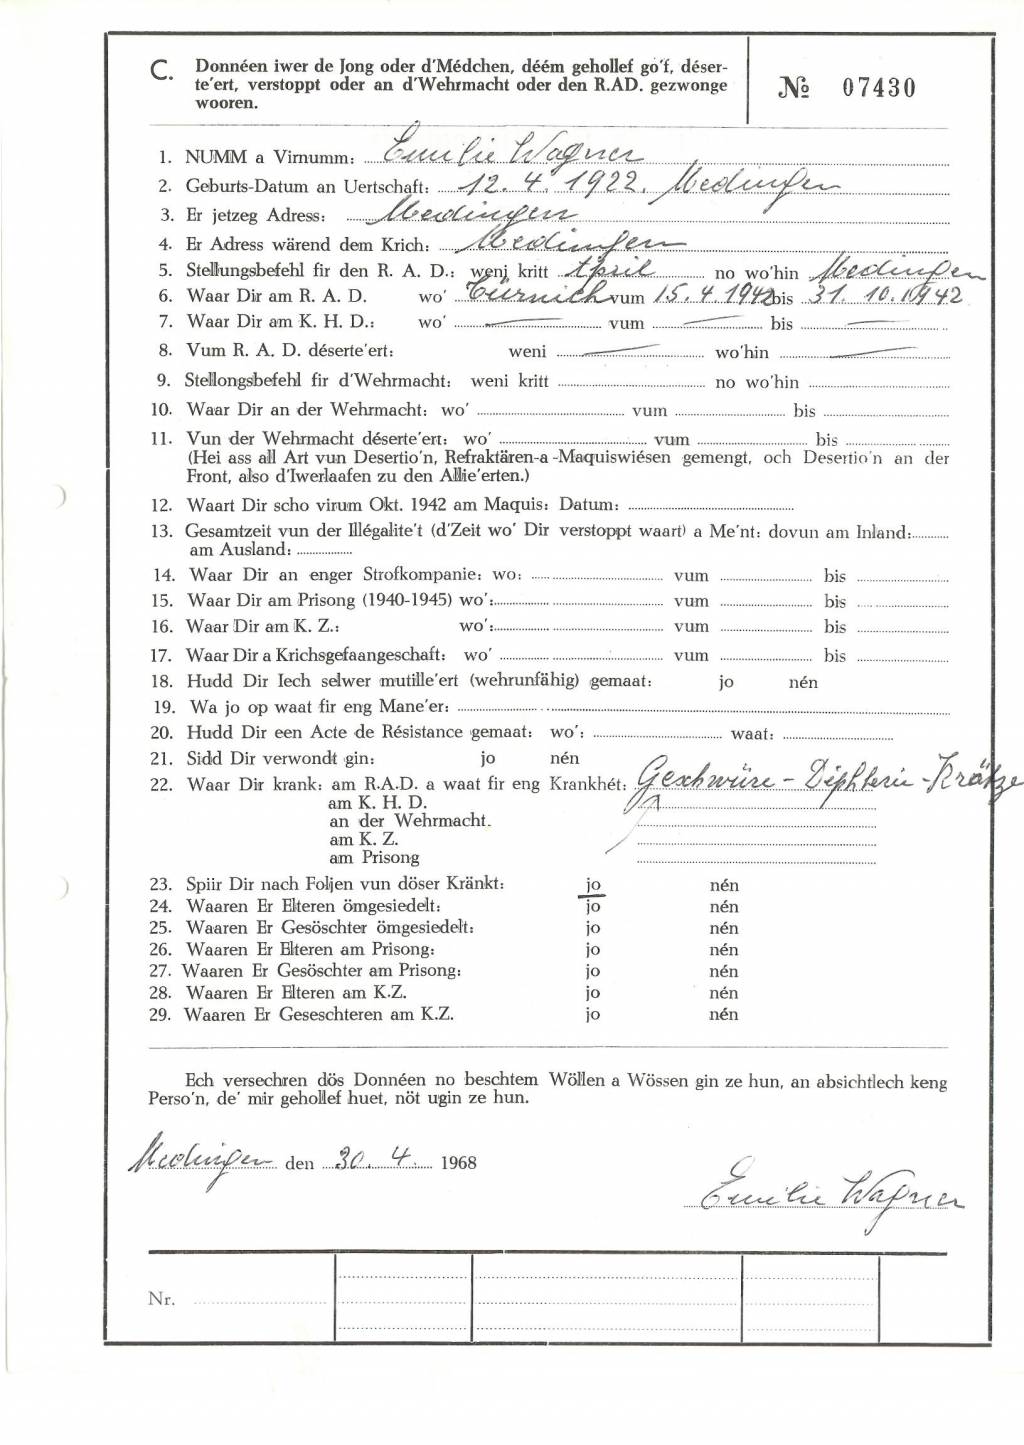 C. Donnéen iwer de Jong oder d'Médchen, déém gehollef go'f, déser-
te'ert, verstoppt oder an d'Wehrmacht oder den R.AD. gezwonge
wooren.
№ 07430
1. NUMM a Virnumm: Emilie Wagner
2. Geburts-Datum an Uertschaft: 12. 4. 1922. Medingen
3. Er jetzeg Adress: Medingen
4. Er Adress wärend dem Krich: Medingen
5. Stellungsbefehl fir den R. A. D.: weni kritt April no wo'hin Medingen
6. Waar Dir am R. A. D. wo' Türnich vum 15. 4. 1942 bis 31. 10. 1942
7. Waar Dir am K. H. D.: wo' — vum — bis —
8. Vum R. A. D. déserte'ert: weni — wo'hin —
9. Stellongsbefehl fir d'Wehrmacht: weni kritt no wo'hin
10. Waar Dir an der Wehrmacht: wo' vum bis
11. Vun der Wehrmacht déserte'ert: wo' vum bis
(Hei ass all Art vun Desertio'n, Refraktären-a-Maquiswiésen gemengt, och Desertio'n an der
Front, also d'Iwerlaafen zu den Allie'erten.)
12. Waart Dir scho virum Okt. 1942 am Maquis: Datum:
13. Gesamtzeit vun der Illégalite't (d'Zeit wo' Dir verstoppt waart) a Me'nt: dovun am Inland:
am Ausland:
14. Waar Dir an enger Strofkompanie: wo: vum bis
15. Waar Dir am Prisong (1940-1945) wo': vum bis
16. Waar Dir am K. Z.: wo': vum bis
17. Waar Dir a Krichsgefaangeschaft: wo' vum bis
18. Hudd Dir Iech selwer mutille'ert (wehrunfähig) gemaat: jo nén
19. Wa jo op waat fir eng Mane'er:
20. Hudd Dir een Acte de Résistance gemaat: wo': waat:
21. Sidd Dir verwondt gin: jo nén
22. Waar Dir krank: am R.A.D. a waat fir eng Krankhét: Geschwüre - Diphterie - Krätze
am K. H. D.
an der Wehrmacht.
am K. Z.
am Prisong
23. Spiir Dir nach Foljen vun döser Kränkt: jo nén
24. Waaren Er Elteren ömgesiedelt: jo nén
25. Waaren Er Gesöschter ömgesiedelt: jo nén
26. Waaren Er Elteren am Prisong: jo nén
27. Waaren Er Gesöschter am Prisong: jo nén
28. Waaren Er Elteren am K.Z. jo nén
29. Waaren Er Geseschteren am K.Z. jo nén
Ech versechren dös Donnéen no beschtem Wöllen a Wössen gin ze hun, an absichtlech keng
Perso'n, de' mir gehollef huet, nöt ugin ze hun.
Medingen den 30. 4. 1968
Emilie Wagner
Nr.